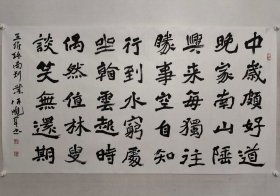 中歲頗好道
晚家南山陲
興來每獨往
勝事空自知
行到水窮處
坐看雲起時
偶然值林叟
談笑無還期
王維詩南別業